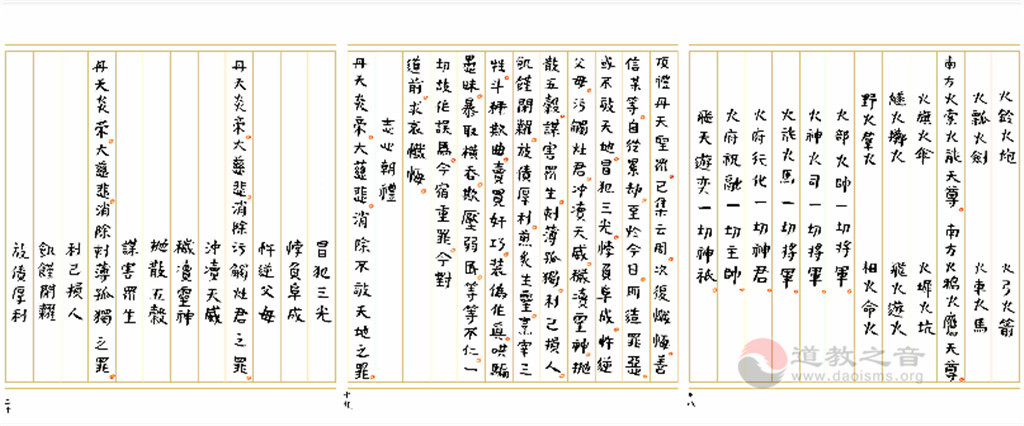 火鈴火炮 火弓火箭
火瓢火劍 火車火馬
南方火雲火龍天尊 南方火鴉火鷹天尊
火旗火傘 火坑
火 火 飛火遊火
野火羣火 相火命火
火部火帥一切將軍
火神火司一切將軍
火龍火馬一切將軍
火府行化一切神君
火府祝融一切主帥
飛天遊奕一切神祇
十八
頂禮丹天聖眾已集云周次復懺悔善
信某等自從累劫至於今日所造罪惡
或不敬天地冒犯三光悖負阜成忤逆
父母污觸灶君沖瀆天威穢瀆靈神拋
散五穀謀害眾生刻薄孤獨利己損人
飢饉閉糶放債厚利煎炙生靈烹宰三
牲斗秤欺曲賣買奸巧裝偽作真哄騙
愚昧暴取橫吞欺壓弱民等等不仁一
切故作誤爲今宿重罪今對
道前求哀懺悔
志心朝禮
丹天炎帝大慈悲消除不敬天地之罪
十九
冒犯三光
悖負阜成
忤逆父母
丹天炎帝大慈悲消除污觸灶君之罪
沖瀆天威
穢瀆靈神
拋散五穀
謀害眾生
丹天炎帝大慈悲消除刻薄孤獨之罪
利己損人
飢饉閉糶
放債厚利
二十
道教之音
www.daoisms.org